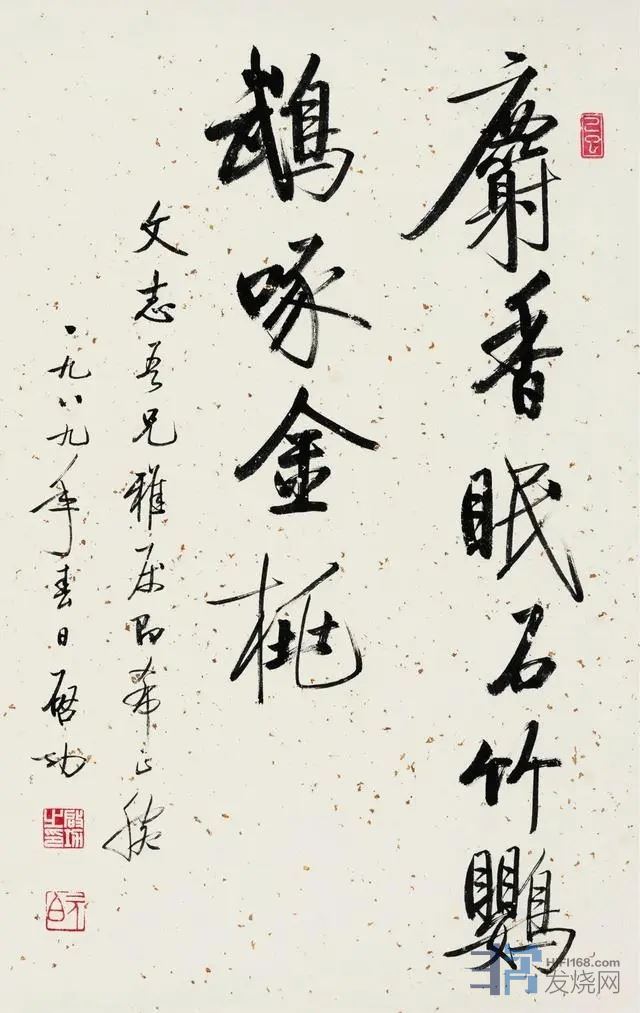 麝香眠石竹鸚
鵡啄金桃
文志吾兄雅属即希正腕
一九八九年春日啓功
啟功之印
元白
HIFI168.com
发烧网